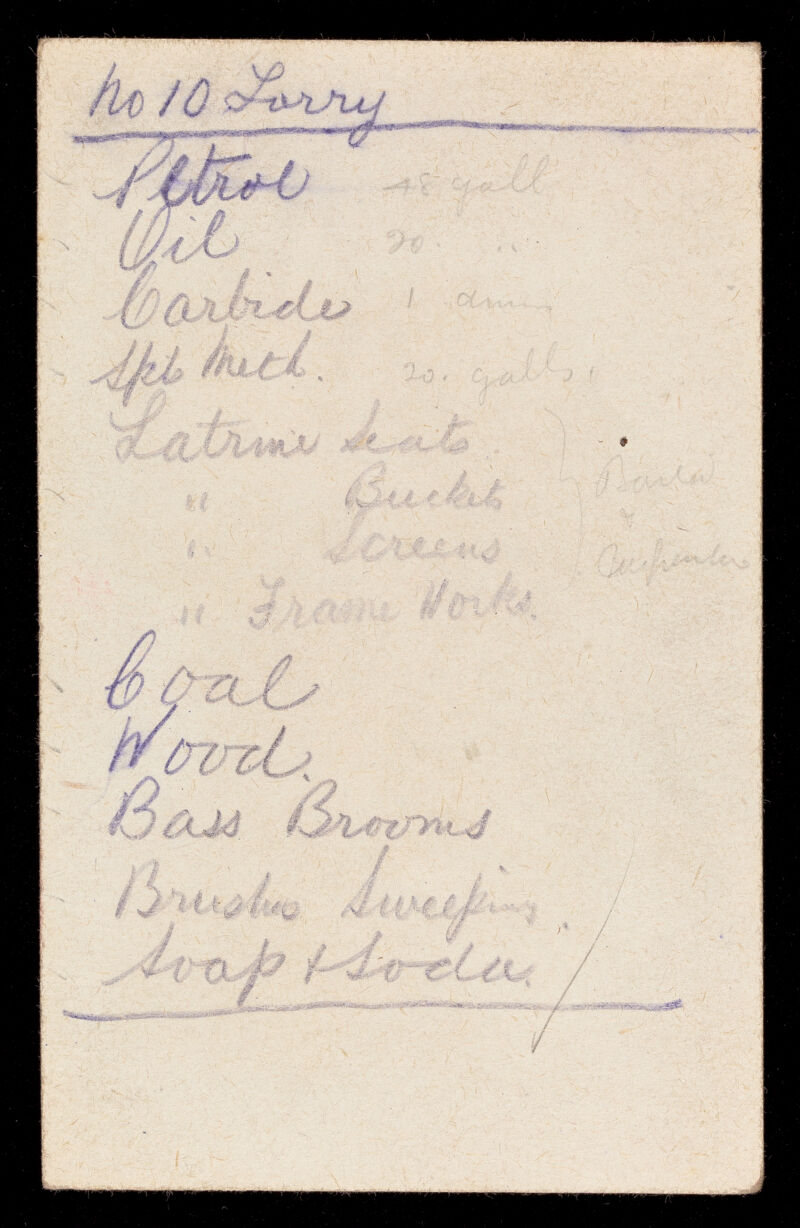 No 10 Lorry
Petrol 48 gall
Oil 20. "
Carbide 1 drum
Spts Meth. 20. galls.
Latrine Seats.
" Buckets
" Screens
" Frame Works.
Carpenter
Coal
Wood.
Bass Brooms
Brushes Sweeping.
Soap + Soda.